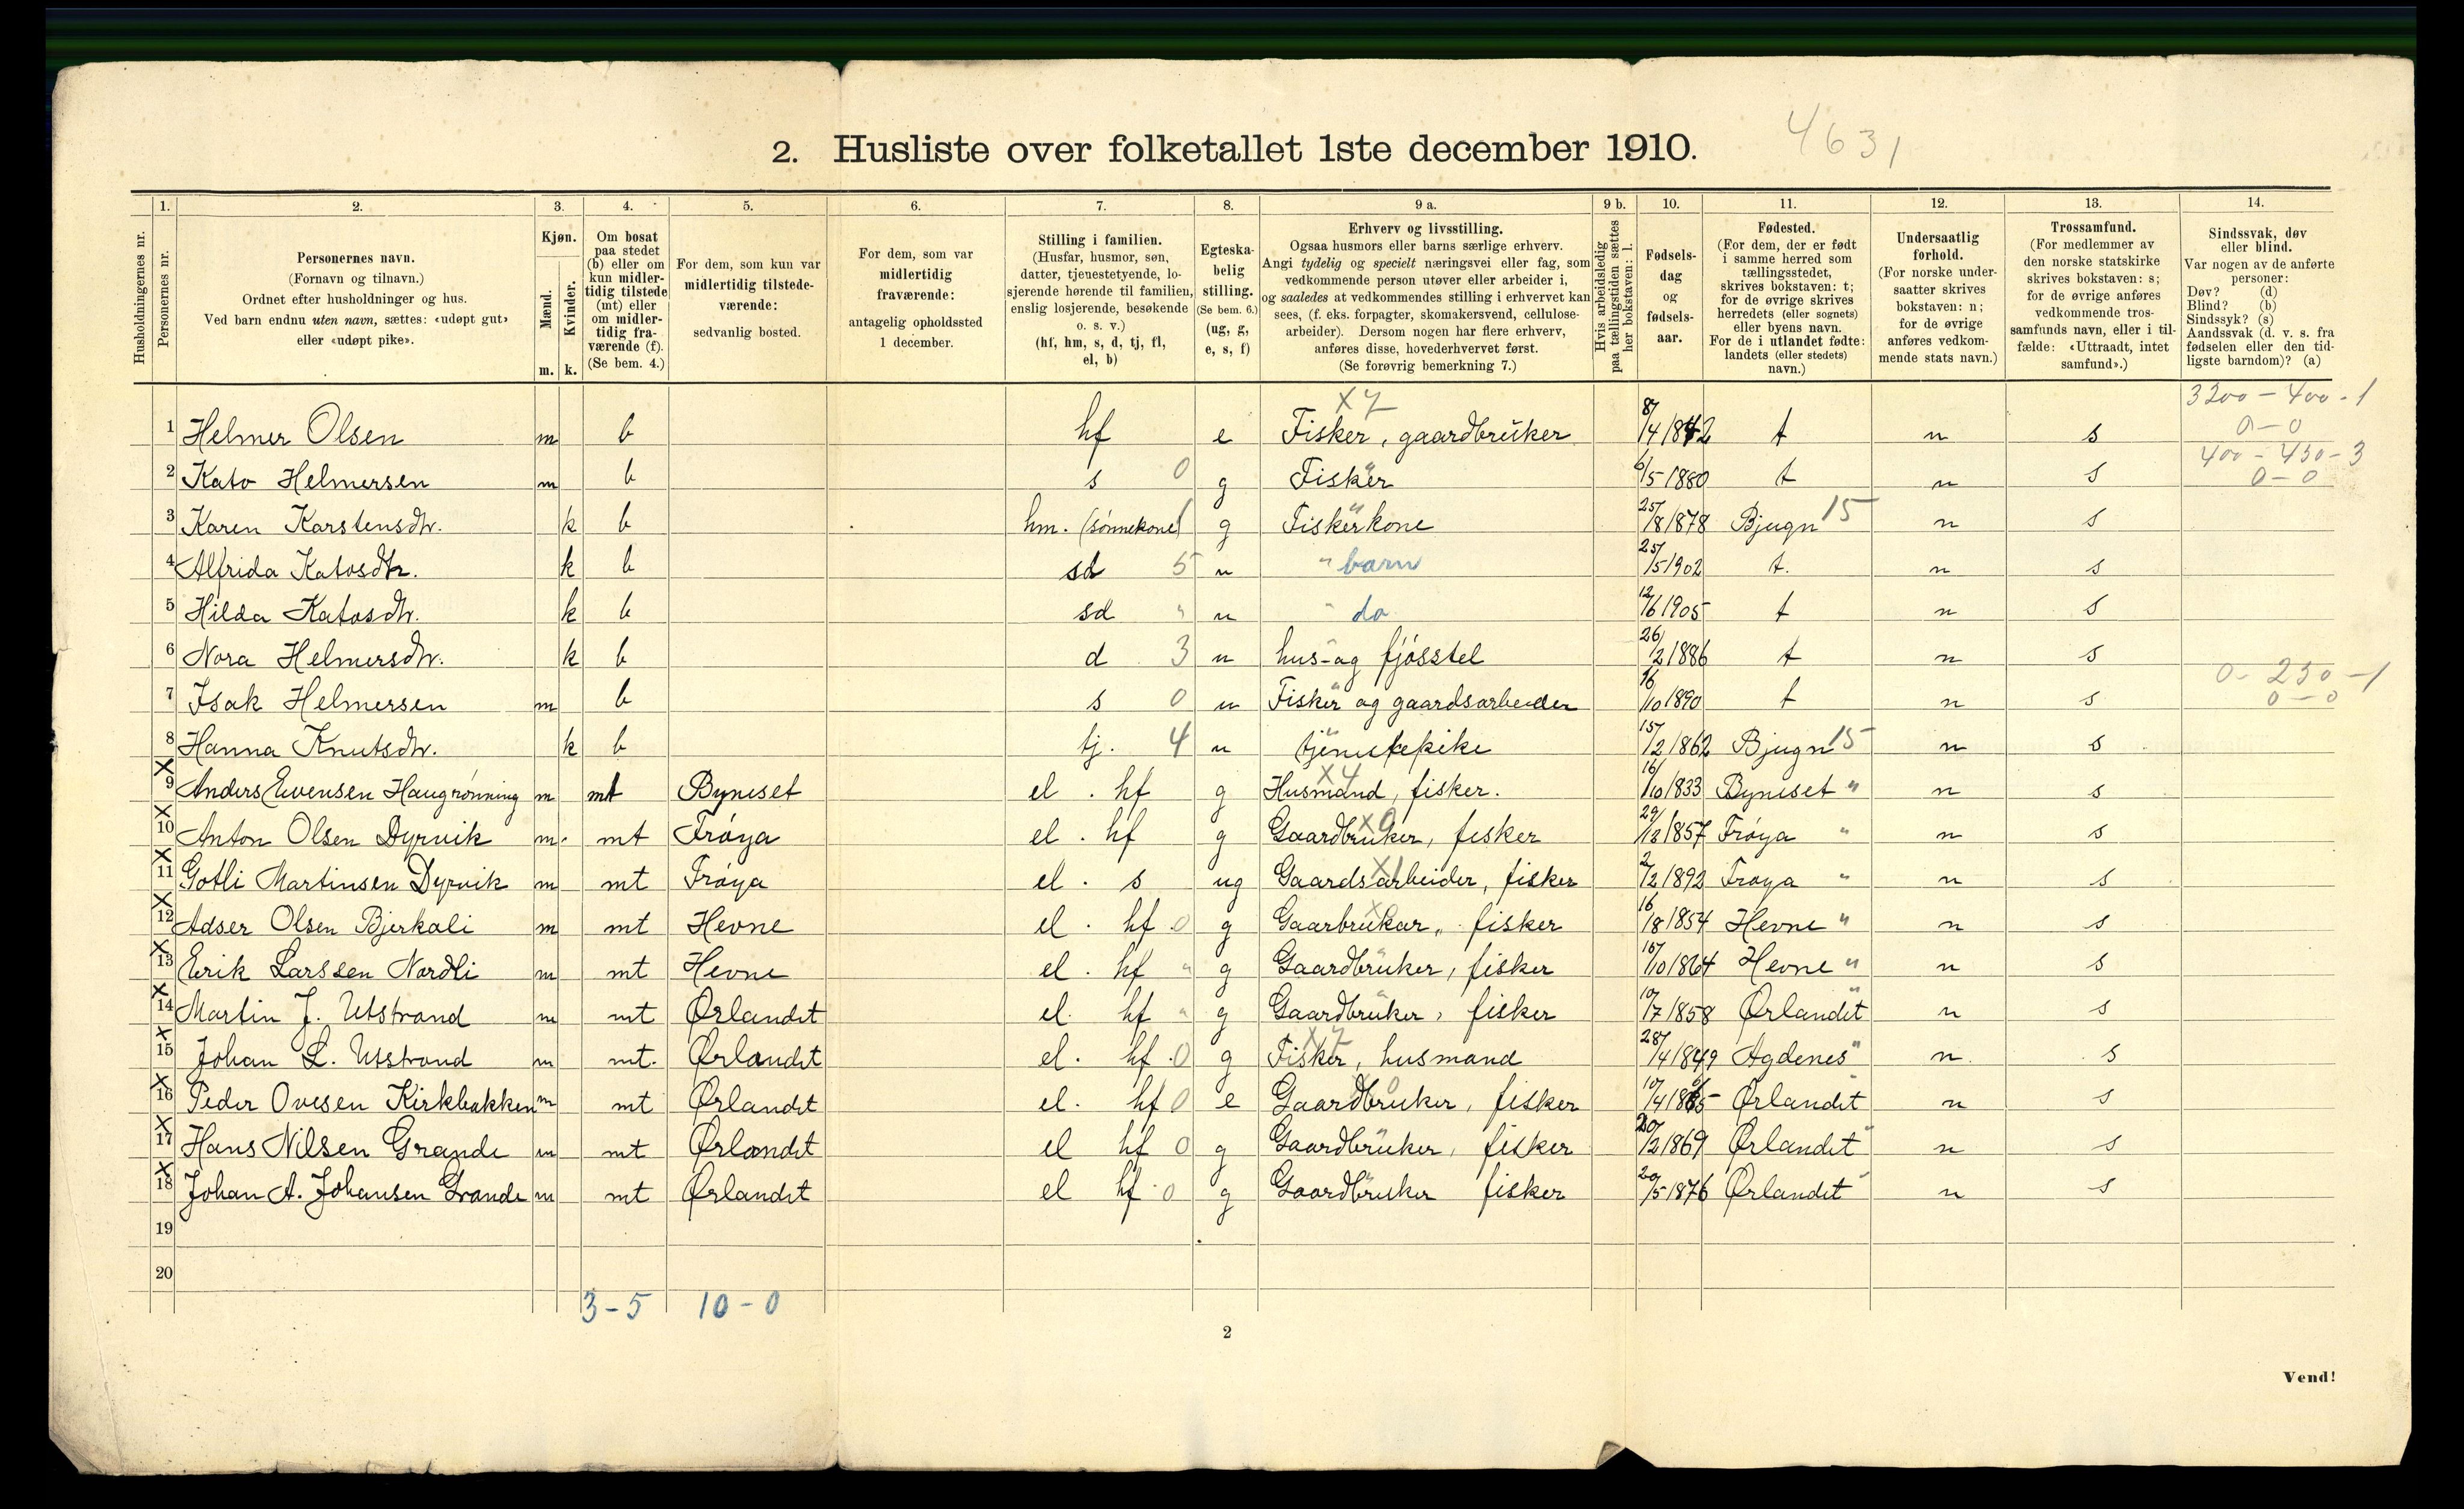 2. Husliste over folketallet 1ste december 1910.
4631
1. 2. 3. 4. 5. 6. 7. 8. 9 a. 9 b. 10. 11. 12. 13. 14.
Husholdningernes nr.
Personernes nr.
Personernes navn.
(Fornavn og tilnavn.)
Ordnet efter husholdninger og hus.
Ved barn endnu uten navn, sættes: «udøpt gut»
eller «udøpt pike».
Kjøn.
Mænd.
Kvinder.
m. k.
Om bosat
paa stedet
(b) eller om
kun midler-
tidig tilstede
(mt) eller
om midler-
tidig fra-
værende (f).
(Se bem. 4.)
For dem, som kun var
midlertidig tilstede-
værende:
sedvanlig bosted.
For dem, som var
midlertidig
fraværende:
antagelig opholdssted
1 december.
Stilling i familien.
(Husfar, husmor, søn,
datter, tjenestetyende, lo-
sjerende hørende til familien,
enslig losjerende, besøkende
o. s. v.)
(hf, hm, s, d, tj, fl,
el, b)
Egteska-
belig
stilling.
(Se bem. 6.)
(ug, g,
e, s, f)
Erhverv og livsstilling.
Ogsaa husmors eller barns særlige erhverv.
Angi tydelig og specielt næringsvei eller fag, som
vedkommende person utøver eller arbeider i,
og saaledes at vedkommendes stilling i erhvervet kan
sees, (f. eks. forpagter, skomakersvend, cellulose-
arbeider). Dersom nogen har flere erhverv,
anføres disse, hovederhvervet først.
(Se forøvrig bemerkning 7.)
Hvis arbeidsledig
paa tællingstiden sættes
her bokstaven: l.
Fødsels-
dag
og
fødsels-
aar.
Fødested.
(For dem, der er født
i samme herred som
tællingsstedet,
skrives bokstaven: t;
for de øvrige skrives
herredets (eller sognets)
eller byens navn.
For de i utlandet fødte:
landets (eller stedets)
navn.)
Undersaatlig
forhold.
(For norske under-
saatter skrives
bokstaven: n;
for de øvrige
anføres vedkom-
mende stats navn.)
Trossamfund.
(For medlemmer av
den norske statskirke
skrives bokstaven: s;
for de øvrige anføres
vedkommende tros-
samfunds navn, eller i til-
fælde: «Uttraadt, intet
samfund».)
Sindssvak, døv
eller blind.
Var nogen av de anførte
personer:
Døv? (d)
Blind? (b)
Sindssyk? (s)
Aandssvak (d. v. s. fra
fødselen eller den tid-
ligste barndom)? (a)
X 7 3200 - 400 - 1
1 Helmer Olsen m b hf e Fisker, gaardbruker 8/4 1842 t n s 0 - 0
400 - 450 - 3
2 Kato Helmersen m b s 0 g Fisker 6/5 1880 t n s 0 - 0
3 Karen Karstensdtr. k b hm. (sønnekone) g Fiskerkone 25/8 1878 Bjugn 15 n s
4 Alfrida Katosdtr. k b sd 5 u " barn 25/5 1902 t. n s
5 Hilda Katosdtr. k b sd " u " do 12/6 1905 t n s
6 Nora Helmersdtr. k b d 3 u hus- og fjøsstel 26/2 1886 t n s
0 - 250 - 1
7 Isak Helmersen m b s 0 u Fisker og gaardsarbeider 16/10 1890 t n s 0 - 0
8 Hanna Knutsdtr. k b tj. 4 u tjenestepike 15/2 1862 Bjugn 15 n s
X 9 Anders Evensen Haugrønning m mt Byneset el . hf g Husmand, fisker. X 4 16/10 1833 Byneset " n s
X 10 Anton Olsen Dyrvik m. mt Frøya el . hf g Gaardbruker, fisker X 0 29/12 1857 Frøya " n s
X 11 Gotli Martinsen Dyrvik m mt Frøya el . s ug Gaardsarbeider, fisker X 1 2/2 1892 Frøya " n s
X 12 Adser Olsen Bjerkali m mt Hevne el . hf 0 g Gaarbrukar, fisker 16/8 1854 Hevne " n s
X 13 Erik Larssen Nordli m mt Hevne el . hf " g Gaardbruker, fisker 15/10 1864 Hevne " n s
X 14 Martin J. Utstrand m mt Ørlandet el. hf " g Gaardbruker, fisker 10/7 1858 Ørlandet " n s
X 15 Johan L. Utstrand m mt. Ørlandet el. hf . 0 g Fisker, husmand X 7 28/4 1849 Agdenes " n. s
X 16 Peder Ovesen Kirkbakken m mt Ørlandet el. hf 0 e Gaardbruker, fisker 10/4 1865 Ørlandet n s
X 17 Hans Nilsen Grande m mt Ørlandet el hf 0 g Gaardbruker, fisker 20/2 1869 Ørlandet " n s
X 18 Johan A. Johansen Grande m mt Ørlandet el hf . 0 g Gaardbruker fisker 20/5 1876 Ørlandet " n s
19
20
3 - 5 10 - 0
2
Vend!